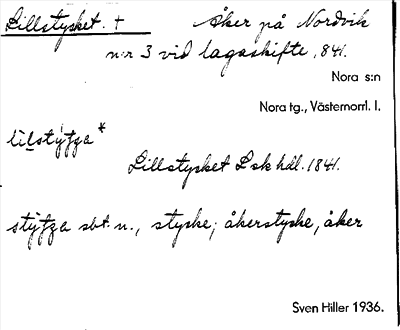 Lillstysket. + Åker på Nordvik
n:r 3 vid lagaskifte, 1841.
Nora s:n
Nora tg., Västernorrl. l.
Lillstysket L sk hdl. 1841.
sbt. n., styske; åkerstyske, åker
Sven Hiller 1936.